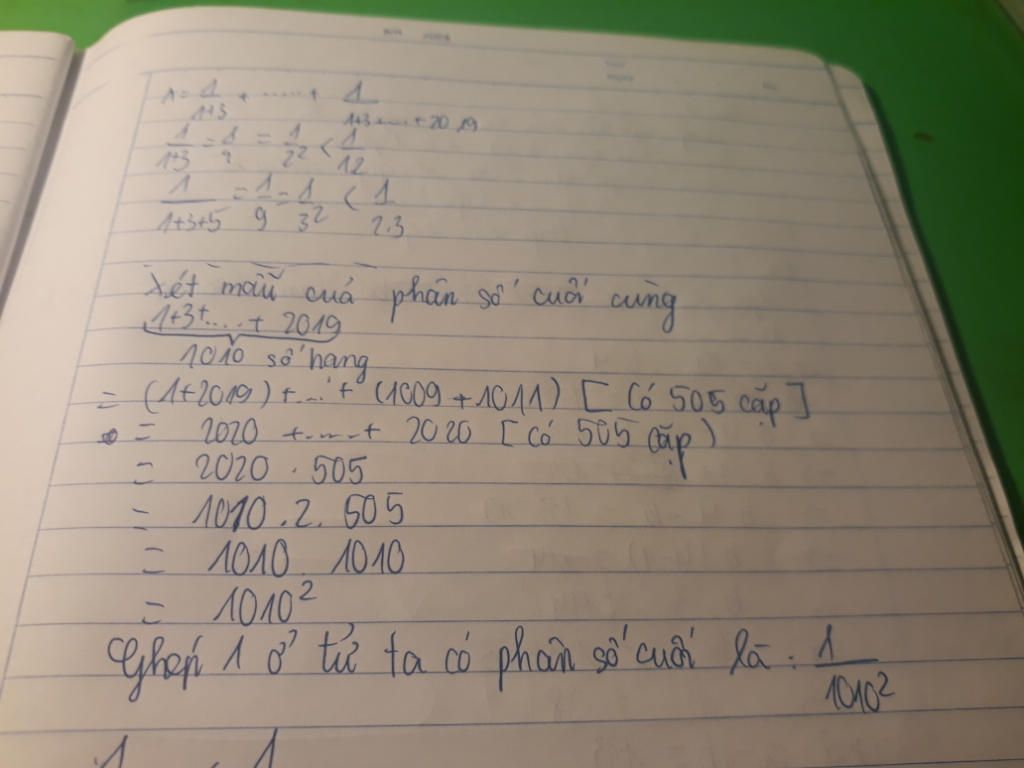 A = 1/(1+3) + ..... + 1/(1+3....+2019)
1/(1+3) = 1/4 = 1/2² < 1/12
1/(1+3+5) = 1/9 = 1/3² < 1/2.3
Xét mẫu cuả phân số cuối cùng
1+3+....+ 2019
1010 số hạng
= (1+2019)+...+ (1009+1011) [Có 505 cặp]
= 2020 +....+ 2020 [Có 505 cặp)
= 2020 . 505
= 1010 . 2 . 505
= 1010 . 1010
= 1010²
Ghép 1 ở tử ta có phân số cuối là : 1/1010²